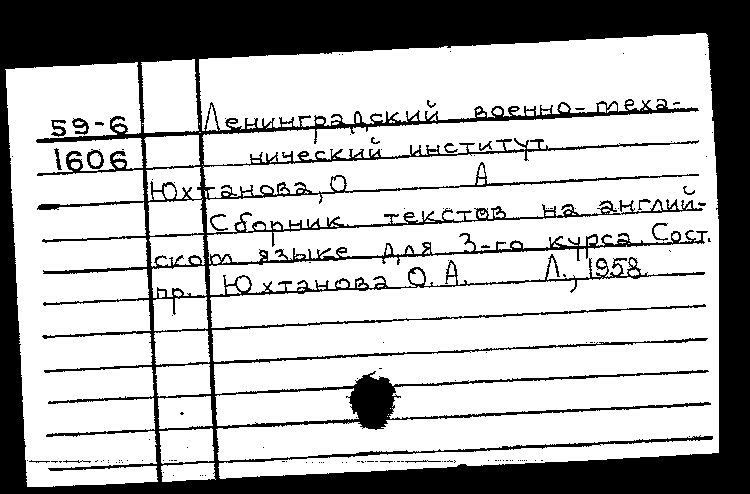 59-6 Ленинградский военно-меха-
1606 нический институт.
Юхтанова, О А
Сборник текстов на англий-
ском языке для 3-го курса. Сост.
пр. Юхтанова О. А. Л., 1958.